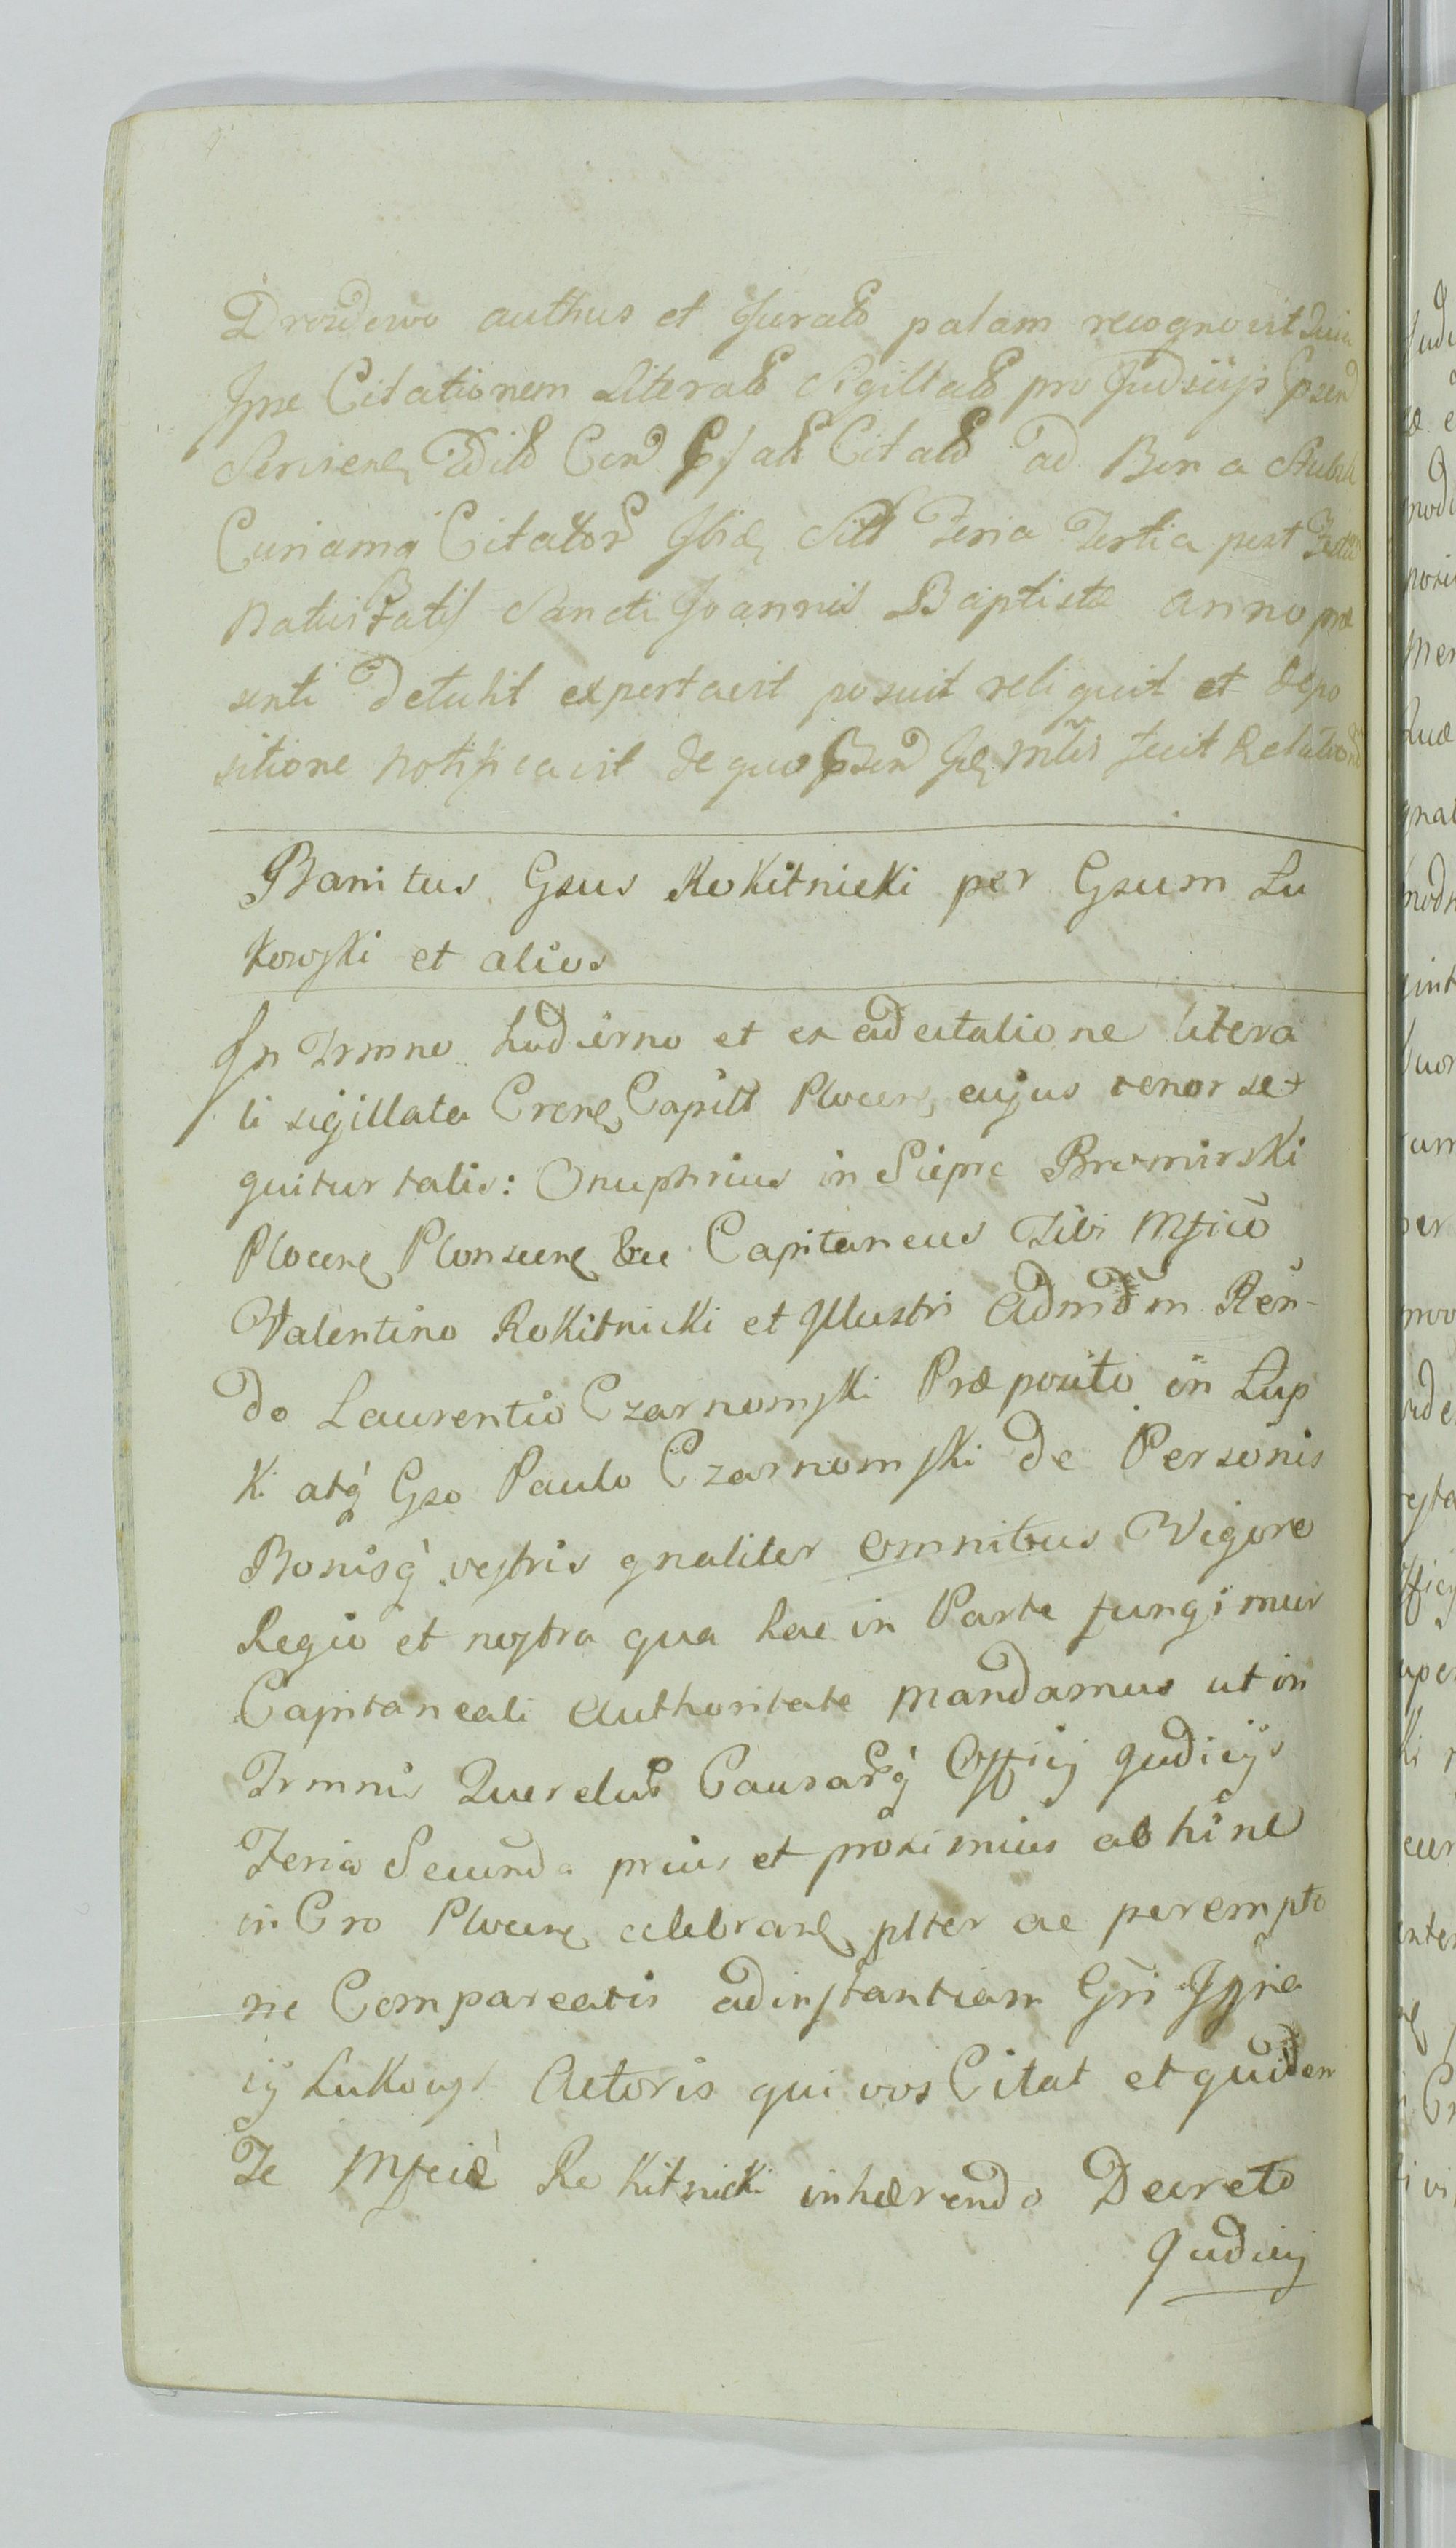 Drozdowo authus et Jurats palam recognovit Quia
Ipse Citationem Literals Sigillats pro Judicijs
Citats ad Bona
Citator Feria Tertia post Festum
Nativitatis Sancti Joannis Baptistæ anno præ
senti detulit exportavit posuit reliquit et depo
sitione notificavit de quo fecit Relation
Banitus Gsus Rokitnicki per Gsum Lu
kowski et alios
In Trmno hodierno et ex ad citatione litera
li sigillata Crens Capitt Plocens cujus tenor se
quitur talis: Onuphrius in Sieprc Bromirski
Plocens Plonscens &cc Capitaneus Tibi Mfico
Valentino Rokitnicki et Illustri Admdm Ren-
do Laurentio Czarnomski Præposito in Lup
ki atq Gso Paulo Czarnomski de Personis
Bonisq vestris gnaliter omnibus Vigore
Regio et nostra qua hac in Parte fungimur
Capitaneali Authoritate mandamus ut in
Trmnis Querelus Causarq Officij Judicijs
Feria Secunda prius et proximius abhinc
in Cro Plocens celebrans plter ac perempto
rie Compareatis ad instantiam Gsi Igna
ij Lukows Actoris qui vos Citat et quidem
Te Mfice Rokitnicki inhærendo Decreto
Judicij